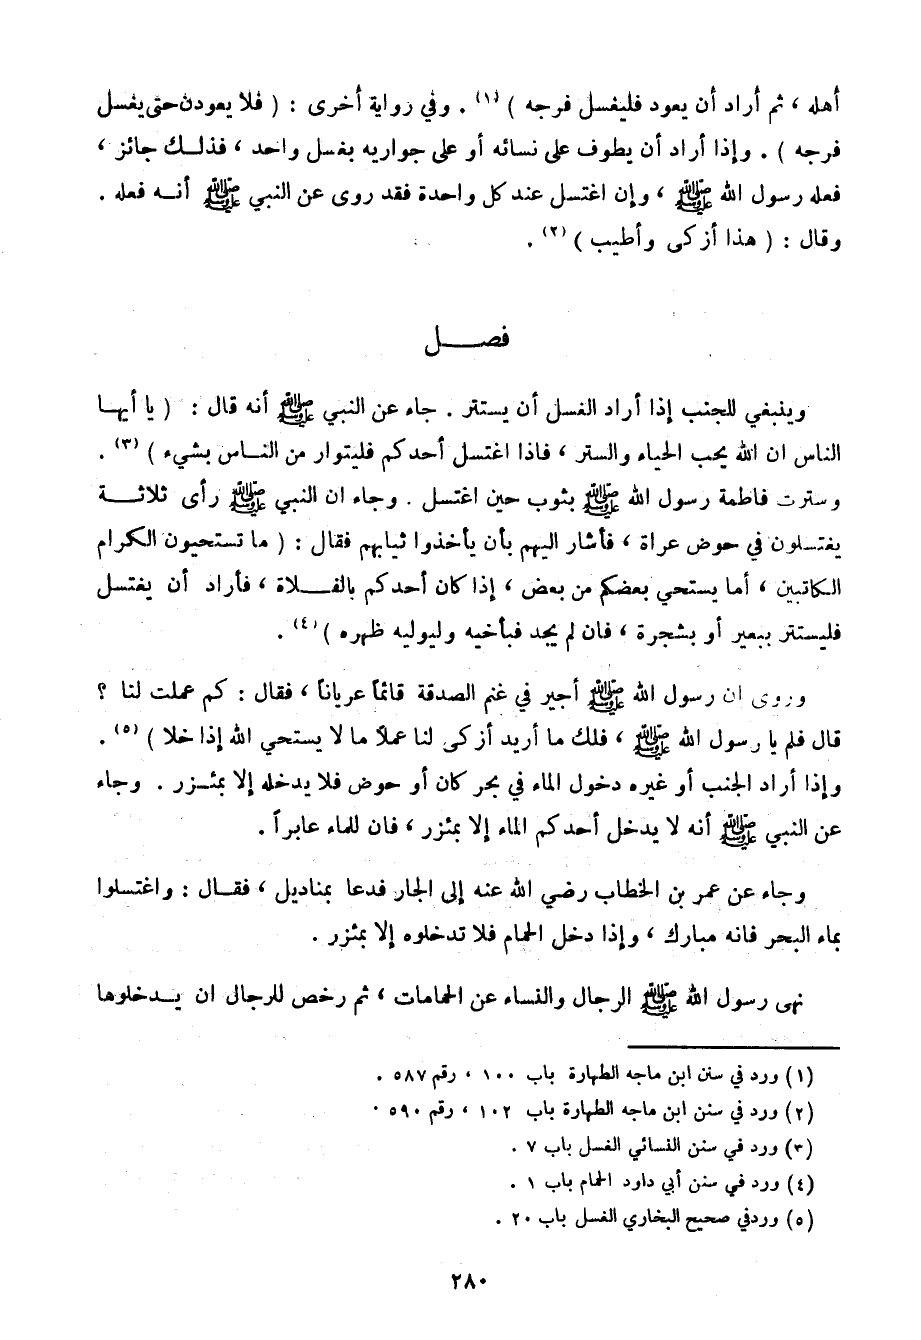 أهله ، ثم أراد أن يعود فليغسل فرجه ) (١) . وفي رواية أخرى : ( فلا يعودن حتى يغسل
فرجه ) . وإذا أراد أن يطوف على نسائه أو على جواريه بغسل واحد ، فذلك جائز ،
فعله رسول الله ﷺ ، وإن اغتسل عند كل واحدة فقد روى عن النبي ﷺ أنه فعله .
وقال : ( هذا أزكى وأطيب ) (٢) .
فصل
وينبغي للجنب إذا أراد الغسل أن يستتر . جاء عن النبي ﷺ أنه قال : ( يا أيها
الناس ان الله يحب الحياء والستر ، فاذا اغتسل أحدكم فليتوار من الناس بشيء ) (٣) .
وسترت فاطمة رسول الله ﷺ بثوب حين اغتسل . وجاء ان النبي ﷺ رأى ثلاثة
يغتسلون في حوض عراة ، فأشار اليهم بأن يأخذوا ثيابهم فقال : ( ما تستحيون الكرام
الكاتبين ، أما يستحي بعضكم من بعض ، إذا كان أحدكم بالفلاة ، فأراد أن يغتسل
فليستتر ببعير أو بشجرة ، فان لم يجد فبأخيه وليوليه ظهره ) (٤) .
وروى ان رسول الله ﷺ أجير في غنم الصدقة قائماً عرياناً ، فقال : كم عملت لنا ؟
قال فلم يا رسول الله ﷺ ، فلك ما أريد أزكى لنا عملاً ما لا يستحي الله إذا خلا ) (٥) .
وإذا أراد الجنب أو غيره دخول الماء في بحر كان أو حوض فلا يدخله إلا بمئزر . وجاء
عن النبي ﷺ أنه لا يدخل أحدكم الماء إلا بمئزر ، فان للماء عابراً .
وجاء عن عمر بن الخطاب رضي الله عنه إلى الجار فدعا بمناديل ، فقال : واغتسلوا
بماء البحر فانه مبارك ، وإذا دخل الحمام فلا تدخلوه إلا بمئزر .
نهى رسول الله ﷺ الرجال والنساء عن الحمامات ، ثم رخص للرجال ان يدخلوها
(١) ورد في سنن ابن ماجه الطهارة باب ١٠٠ ، رقم ٥٨٧ .
(٢) ورد في سنن ابن ماجه الطهارة باب ١٠٢ ، رقم ٥٩٠ .
(٣) ورد في سنن النسائي الغسل باب ٧ .
(٤) ورد في سنن أبي داود الحمام باب ١ .
(٥) ورد في صحيح البخاري الغسل باب ٢٠ .
٢٨٠